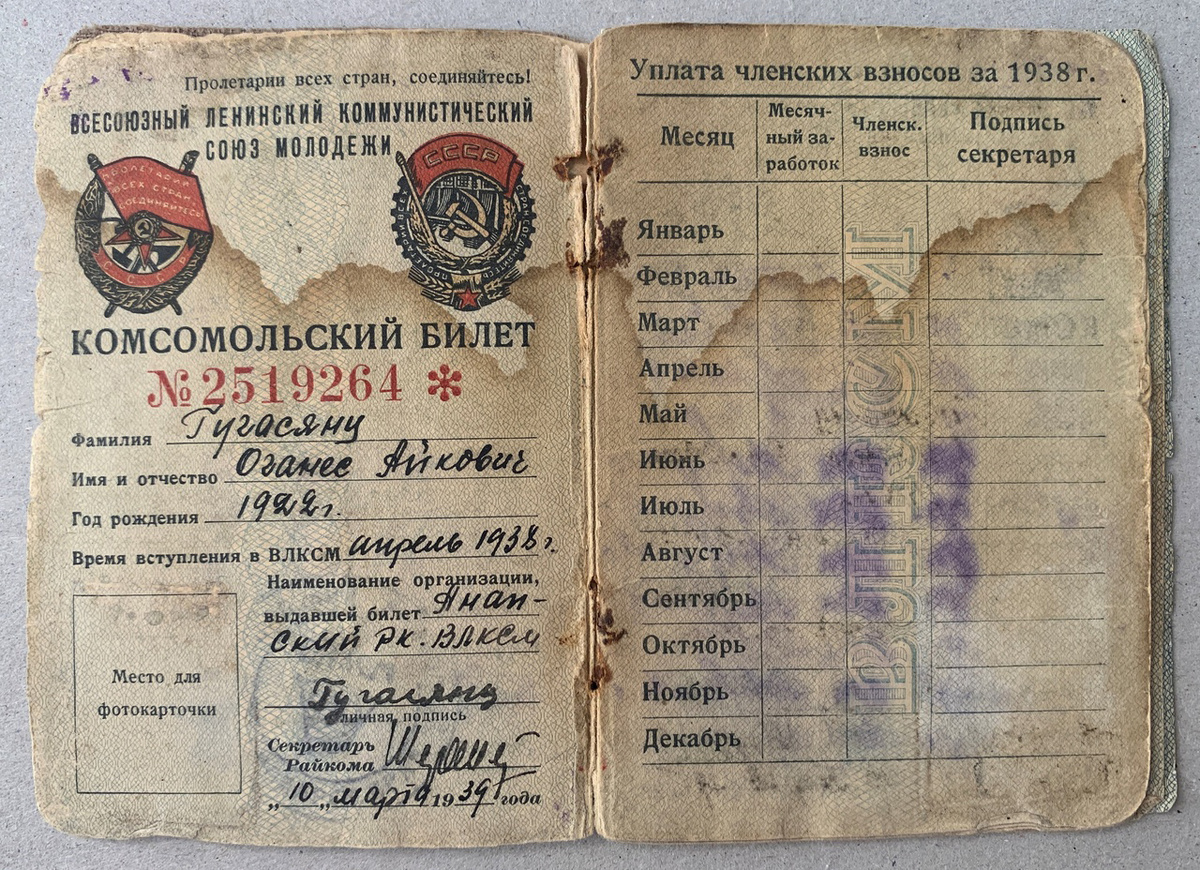 Пролетарии всех стран, соединяйтесь!
ВСЕСОЮЗНЫЙ ЛЕНИНСКИЙ КОММУНИСТИЧЕСКИЙ
СОЮЗ МОЛОДЕЖИ
ПРОЛЕТАРИИ
ВСЕХ СТРАН,
СОЕДИНЯЙТЕСЬ!
СССР
СССР
ПРОЛЕТАРИИ ВСЕХ СТРАН, СОЕДИНЯЙТЕСЬ
КОМСОМОЛЬСКИЙ БИЛЕТ
№ 2519264 *
Фамилия Гугасянц
Имя и отчество Оганес Айкович
Год рождения 1922 г.
Время вступления в ВЛКСМ апрель 1938 г.
Наименование организации,
выдавшей билет Анап-
ский рк. ВЛКСМ
Место для
фотокарточки
Гугасянц
личная подпись
Секретарь
Райкома
„10„ марта 1939 года
Уплата членских взносов за 1938 г.
Месяц
Месяч-
ный за-
работок
Членск.
взнос
Подпись
секретаря
Январь
Февраль
Март
Апрель
Май
Июнь
Июль
Август
Сентябрь
Октябрь
Ноябрь
Декабрь
ВЛКСМ